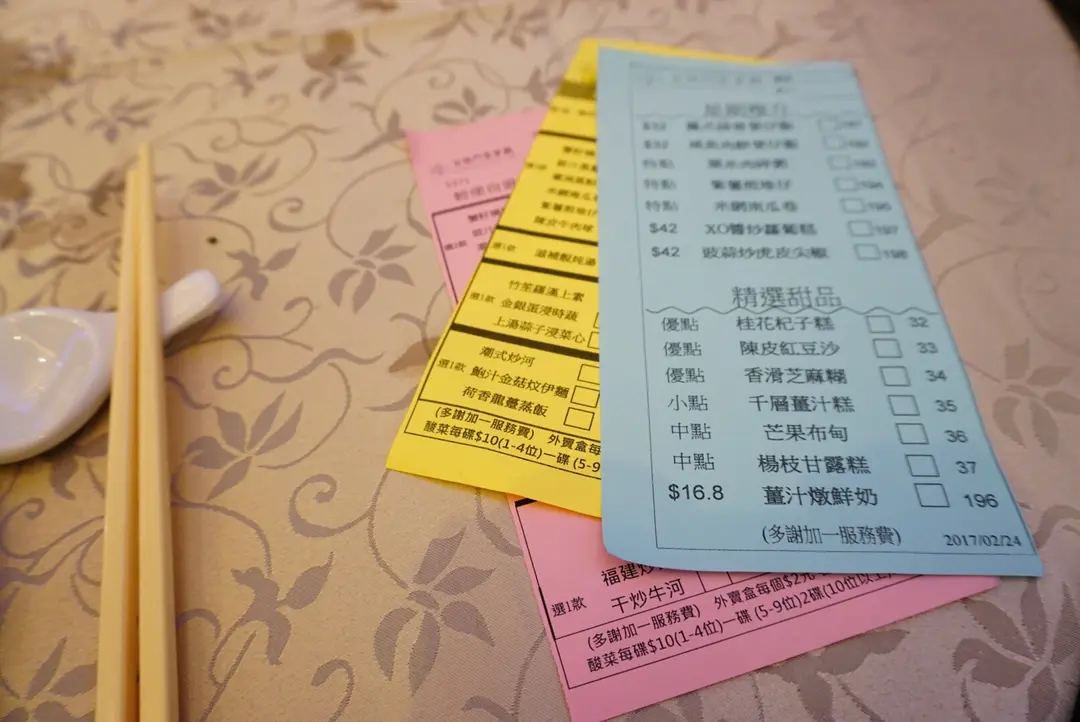 $32
$32
特點
特點 紫薯煎堆仔
特點 米網南瓜卷 195
$42 XO醬炒蘿蔔糕 197
$42 豉蒜炒虎皮尖椒 198
精選甜品
優點 桂花杞子糕 32
優點 陳皮紅豆沙 33
優點 香滑芝麻糊 34
小點 千層薑汁糕 35
中點 芒果布甸 36
中點 楊枝甘露糕 37
$16.8 薑汁燉鮮奶 196
(多謝加一服務費) 2017/02/24
選1款
竹笙羅漢上素
選1款 金銀蛋浸時蔬
上湯蒜子浸菜心
潮式炒河
選1款 鮑汁金菇炆伊麵
荷香龍躉蒸飯
(多謝加一服務費) 外賣盒每
酸菜每碟$10(1-4位)一碟 (5-9
福建炒
選1款 干炒牛河
(多謝加一服務費) 外賣盒每個$2元
酸菜每碟$10(1-4位)一碟 (5-9位)2碟(10位以上